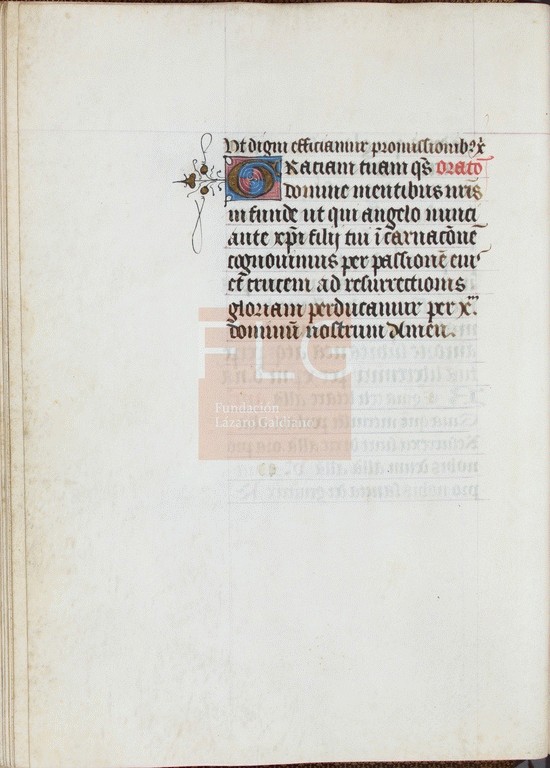 Ut digni efficiamur promissionib9 x
GRaciam tuam qs̄ Oratō
domine mentibus nr̄is
in funde ut qui angelo nunci
ante xp̄i filij tui ī carnacōnē
cognouimus per passionē eiu9
et crucem ad resurrectionis
gloriam perducamur per xm̄.
dominū nostrum Amen.
FLG
Fundación
Lázaro Galdiano